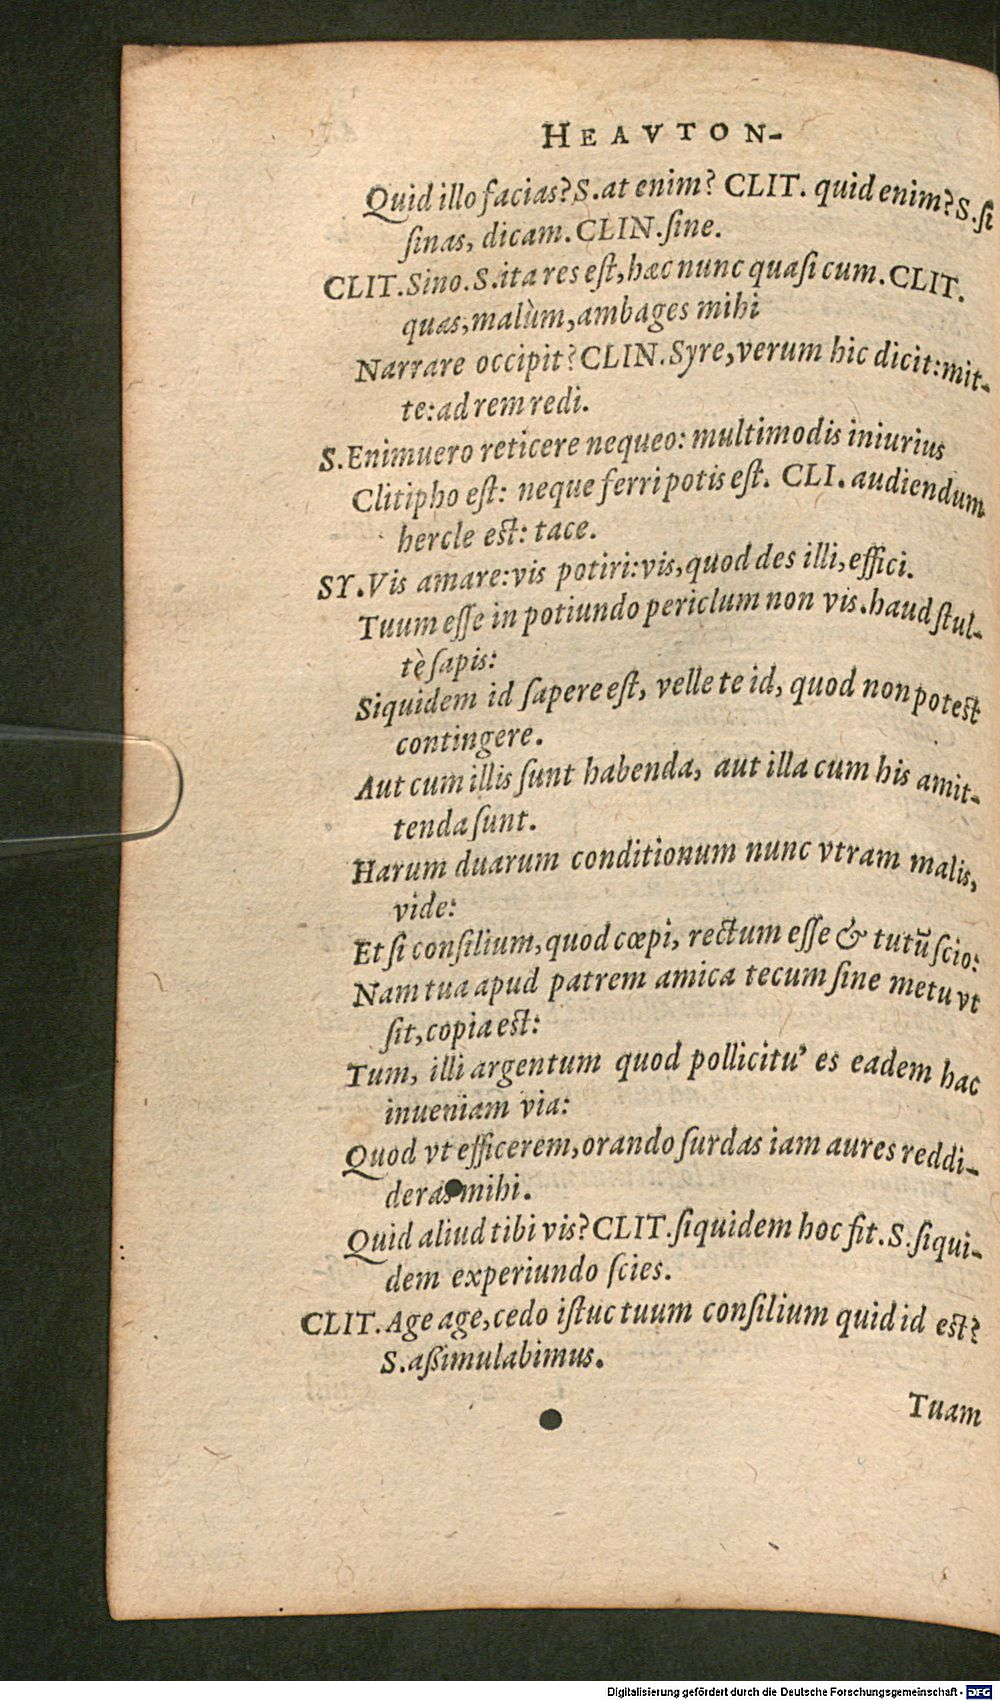 HEAVTON-
Quid illo facias? S. at enim? CLIT. quid enim? S. ſi
ſinas, dicam. CLIN. ſine.
CLIT. Sino. S. ita res eſt, hæc nunc quaſi cum. CLIT.
quas, malùm, ambages mihi
Narrare occipit? CLIN. Syre, verum hic dicit: mit-
te: ad rem redi.
S. Enimuero reticere nequeo: multimodis iniurius
Clitipho eſt: neque ferri potis eſt. CLI. audiendum
hercle eſt: tace.
SY. Vis amare: vis potiri: vis, quod des illi, effici.
Tuum eſſe in potiundo periclum non vis. haud ſtul-
tè ſapis:
Siquidem id ſapere eſt, velle te id, quod non poteſt
contingere.
Aut cum illis ſunt habenda, aut illa cum his amit-
tenda ſunt.
Harum duarum conditionum nunc vtram malis,
vide:
Et ſi conſilium, quod cœpi, rectum eſſe & tutū ſcio:
Nam tua apud patrem amica tecum ſine metu vt
ſit, copia eſt:
Tum, illi argentum quod pollicitu' es eadem hac
inueniam via:
Quod vt efficerem, orando ſurdas iam aures reddi-
deras mihi.
Quid aliud tibi vis? CLIT. ſiquidem hoc fit. S. ſiqui-
dem experiundo ſcies.
CLIT. Age age, cedo iſtuc tuum conſilium quid id eſt?
S. aßimulabimus.
Tuam
Digitalisierung gefördert durch die Deutsche Forschungsgemeinschaft - DFG